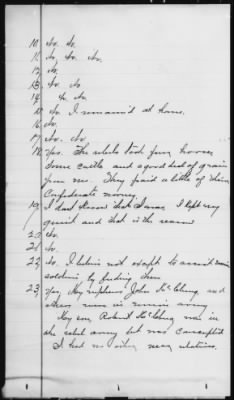 10, No. No.
11, No. No. No.
12, No.
13, No. No
14, No No.
15, No. I remain'd at home.
16, No.
17, No. No.
18, Yes. The rebels took four horses
some cattle and a good deal of grain
from me. They paid a little of their
Confederate money
19, I dont know that I was. I kept very
quiet and that is the reason
20, No.
21, No.
22, No. I believe not except to assist union
soldiers by feeding them
23, Yes, My nephews John McClung and
others were in union army
My son, Robert McClung was in
the rebel army but was conscripted
I had no other near relatives.